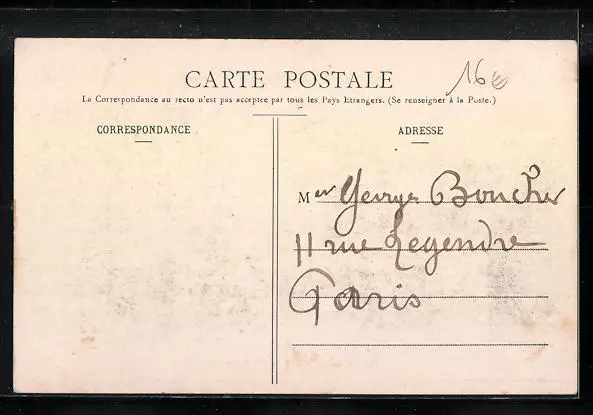 CARTE POSTALE
16 €
La Correspondance au recto n'est pas acceptee par tous les Pays Etrangers. (Se renseigner à la Poste.)
CORRESPONDANCE
ADRESSE
Mer George Boucher
11 rue Legendre
Paris